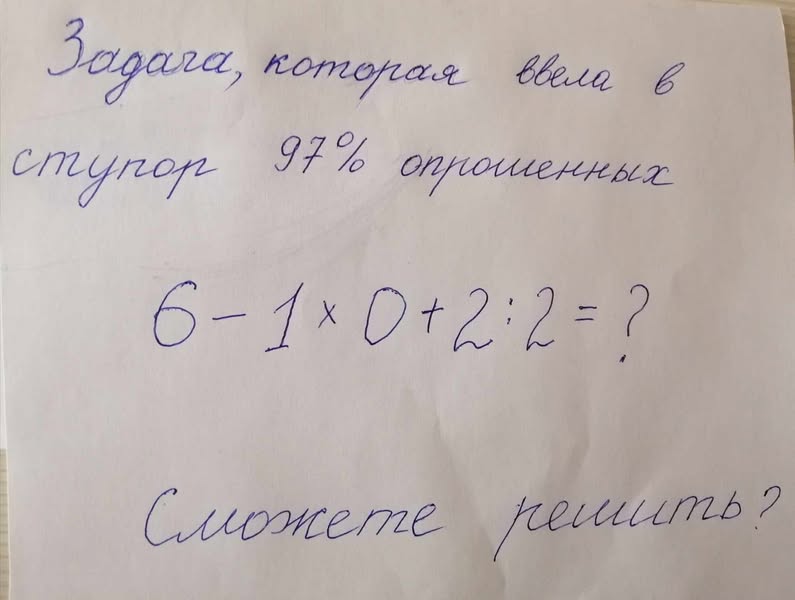 Задача, которая ввела в
ступор 97% опрошенных
6-1×0+2:2=?
Сможете решить?